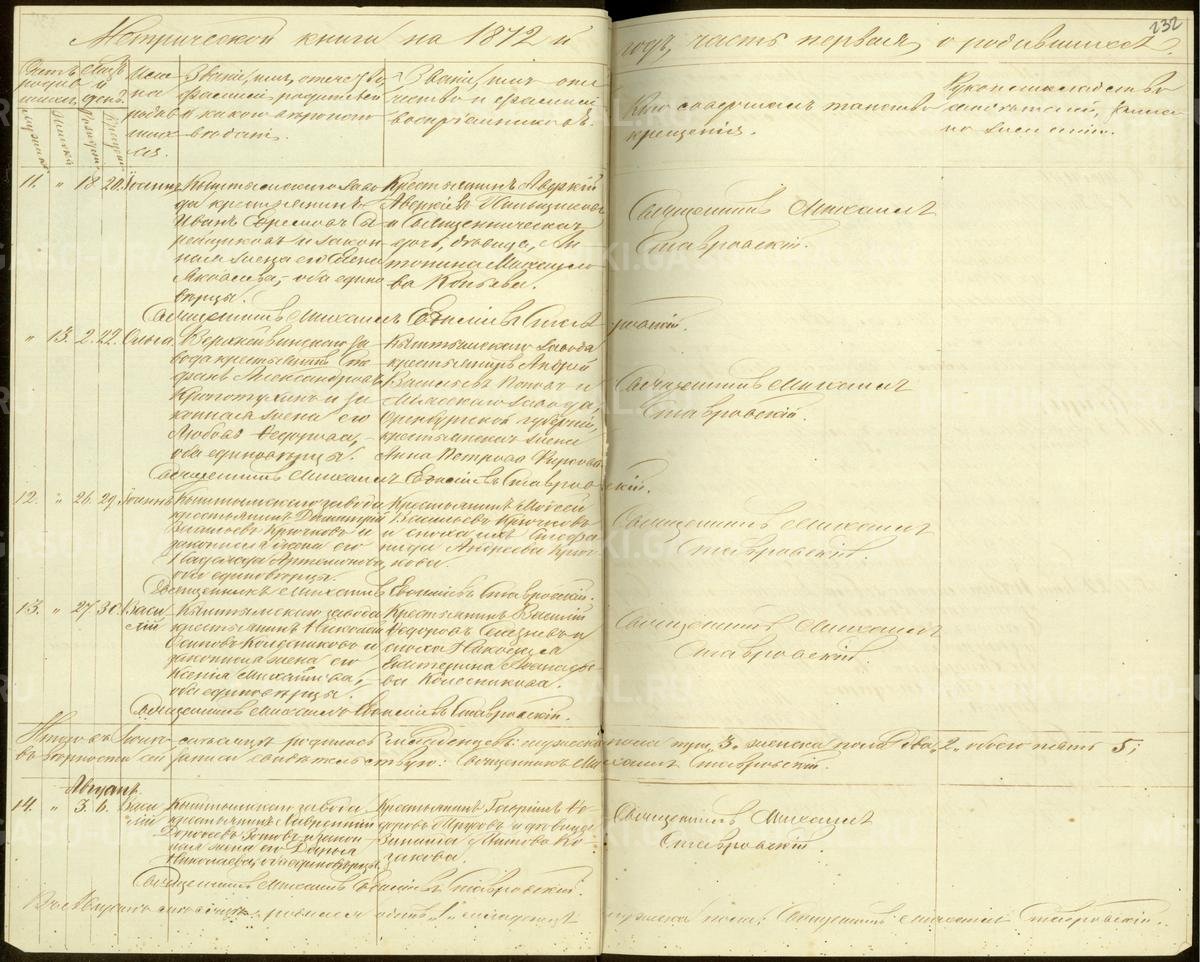 232
Метрической книги на 1872 й годъ, часть первая, о родившихся.
Счетъ родившихся
Мѣсяцъ и день
Имена родившихся.
Званіе, имя, отечество, фамилія родителей и какого вѣроисповѣданія.
Званіе, имя, отчество и фамилія воспріемниковъ.
Кто совершалъ таинство крещенія.
Рукоприкладство свидѣтелей записи по желанію.
11. " 18 20. Іоаннъ
Кыштымскаго заво
да крестьянинъ
Иванъ Ефремовъ
и закон
ная жена его Елена
Яковлева, оба едино
вѣрцы.
Крестьянинъ Аверкій
Аверкіевъ
и Священническая
дочь, дѣвица, Ан
тонина Михайло
ва
Священникъ Михаилъ
Ставровскій.
Священникъ Михаилъ Евѳиміевъ Ставровскій.
" 13. 2. 22. Ольга
За
вода крестьянинъ Сте
фанъ Александровъ
и за
конная жена его
Любовь Ѳедорова,
оба единовѣрцы.
Кыштымскаго завода
крестьянинъ Андрей
Васильевъ Поповъ и
Міасскаго завода,
Оренбургской губерніи,
крестьянская жена
Анна Петрова
Священникъ Михаилъ
Ставровскій.
Священникъ Михаилъ Евѳиміевъ Ставровскій.
12. " 26. 29. Іоаннъ
Кыштымскаго завода
крестьянинъ Димитрій
Васильевъ Крючковъ и
законная жена его
Надежда Артемонова,
оба единовѣрцы.
Крестьянинъ Моѵсей
Васильевъ Крючковъ
и сноха ихъ Стефа
нида Андреева Крюч
кова.
Священникъ Михаилъ
Ставровскій.
Священникъ Михаилъ Евѳиміевъ Ставровскій.
13. " 27 30. Васи
лій
Кыштымскаго завода
крестьянинъ Николай
Осиповъ Колесниковъ и
законная жена его
Ксенія Михайлова,
оба единовѣрцы.
Крестьянинъ Василій
Ѳедоровъ Селезневъ и
сноха Николая
Екатерина Аѳанасье
ва Колесникова.
Священникъ Михаилъ
Ставровскій.
Священникъ Михаилъ Евѳиміевъ Ставровскій.
Итого въ Іюлѣ мѣсяцѣ родилось младенцевъ: мужеска пола три, 3. женска пола два, 2. обоего пять 5;
въ вѣрности сей записи свидѣтельствую: Священникъ Михаилъ Ставровскій.
Августъ.
14. " 3. 6. Васи
лій
Кыштымскаго завода
крестьянинъ Лаврентій
Дороѳеевъ Зотовъ и закон
ная жена его Дарья
Николаева, оба единовѣрцы.
Крестьянинъ Гавріилъ Ѳе
доровъ и дѣвица
Зинаида Титова Ко
закова.
Священникъ Михаилъ
Ставровскій.
Священникъ Михаилъ Евѳиміевъ Ставровскій.
Въ Августѣ мѣсяцѣ родился одинъ "1" младенецъ мужеска пола; Священникъ Михаилъ Ставровскій.